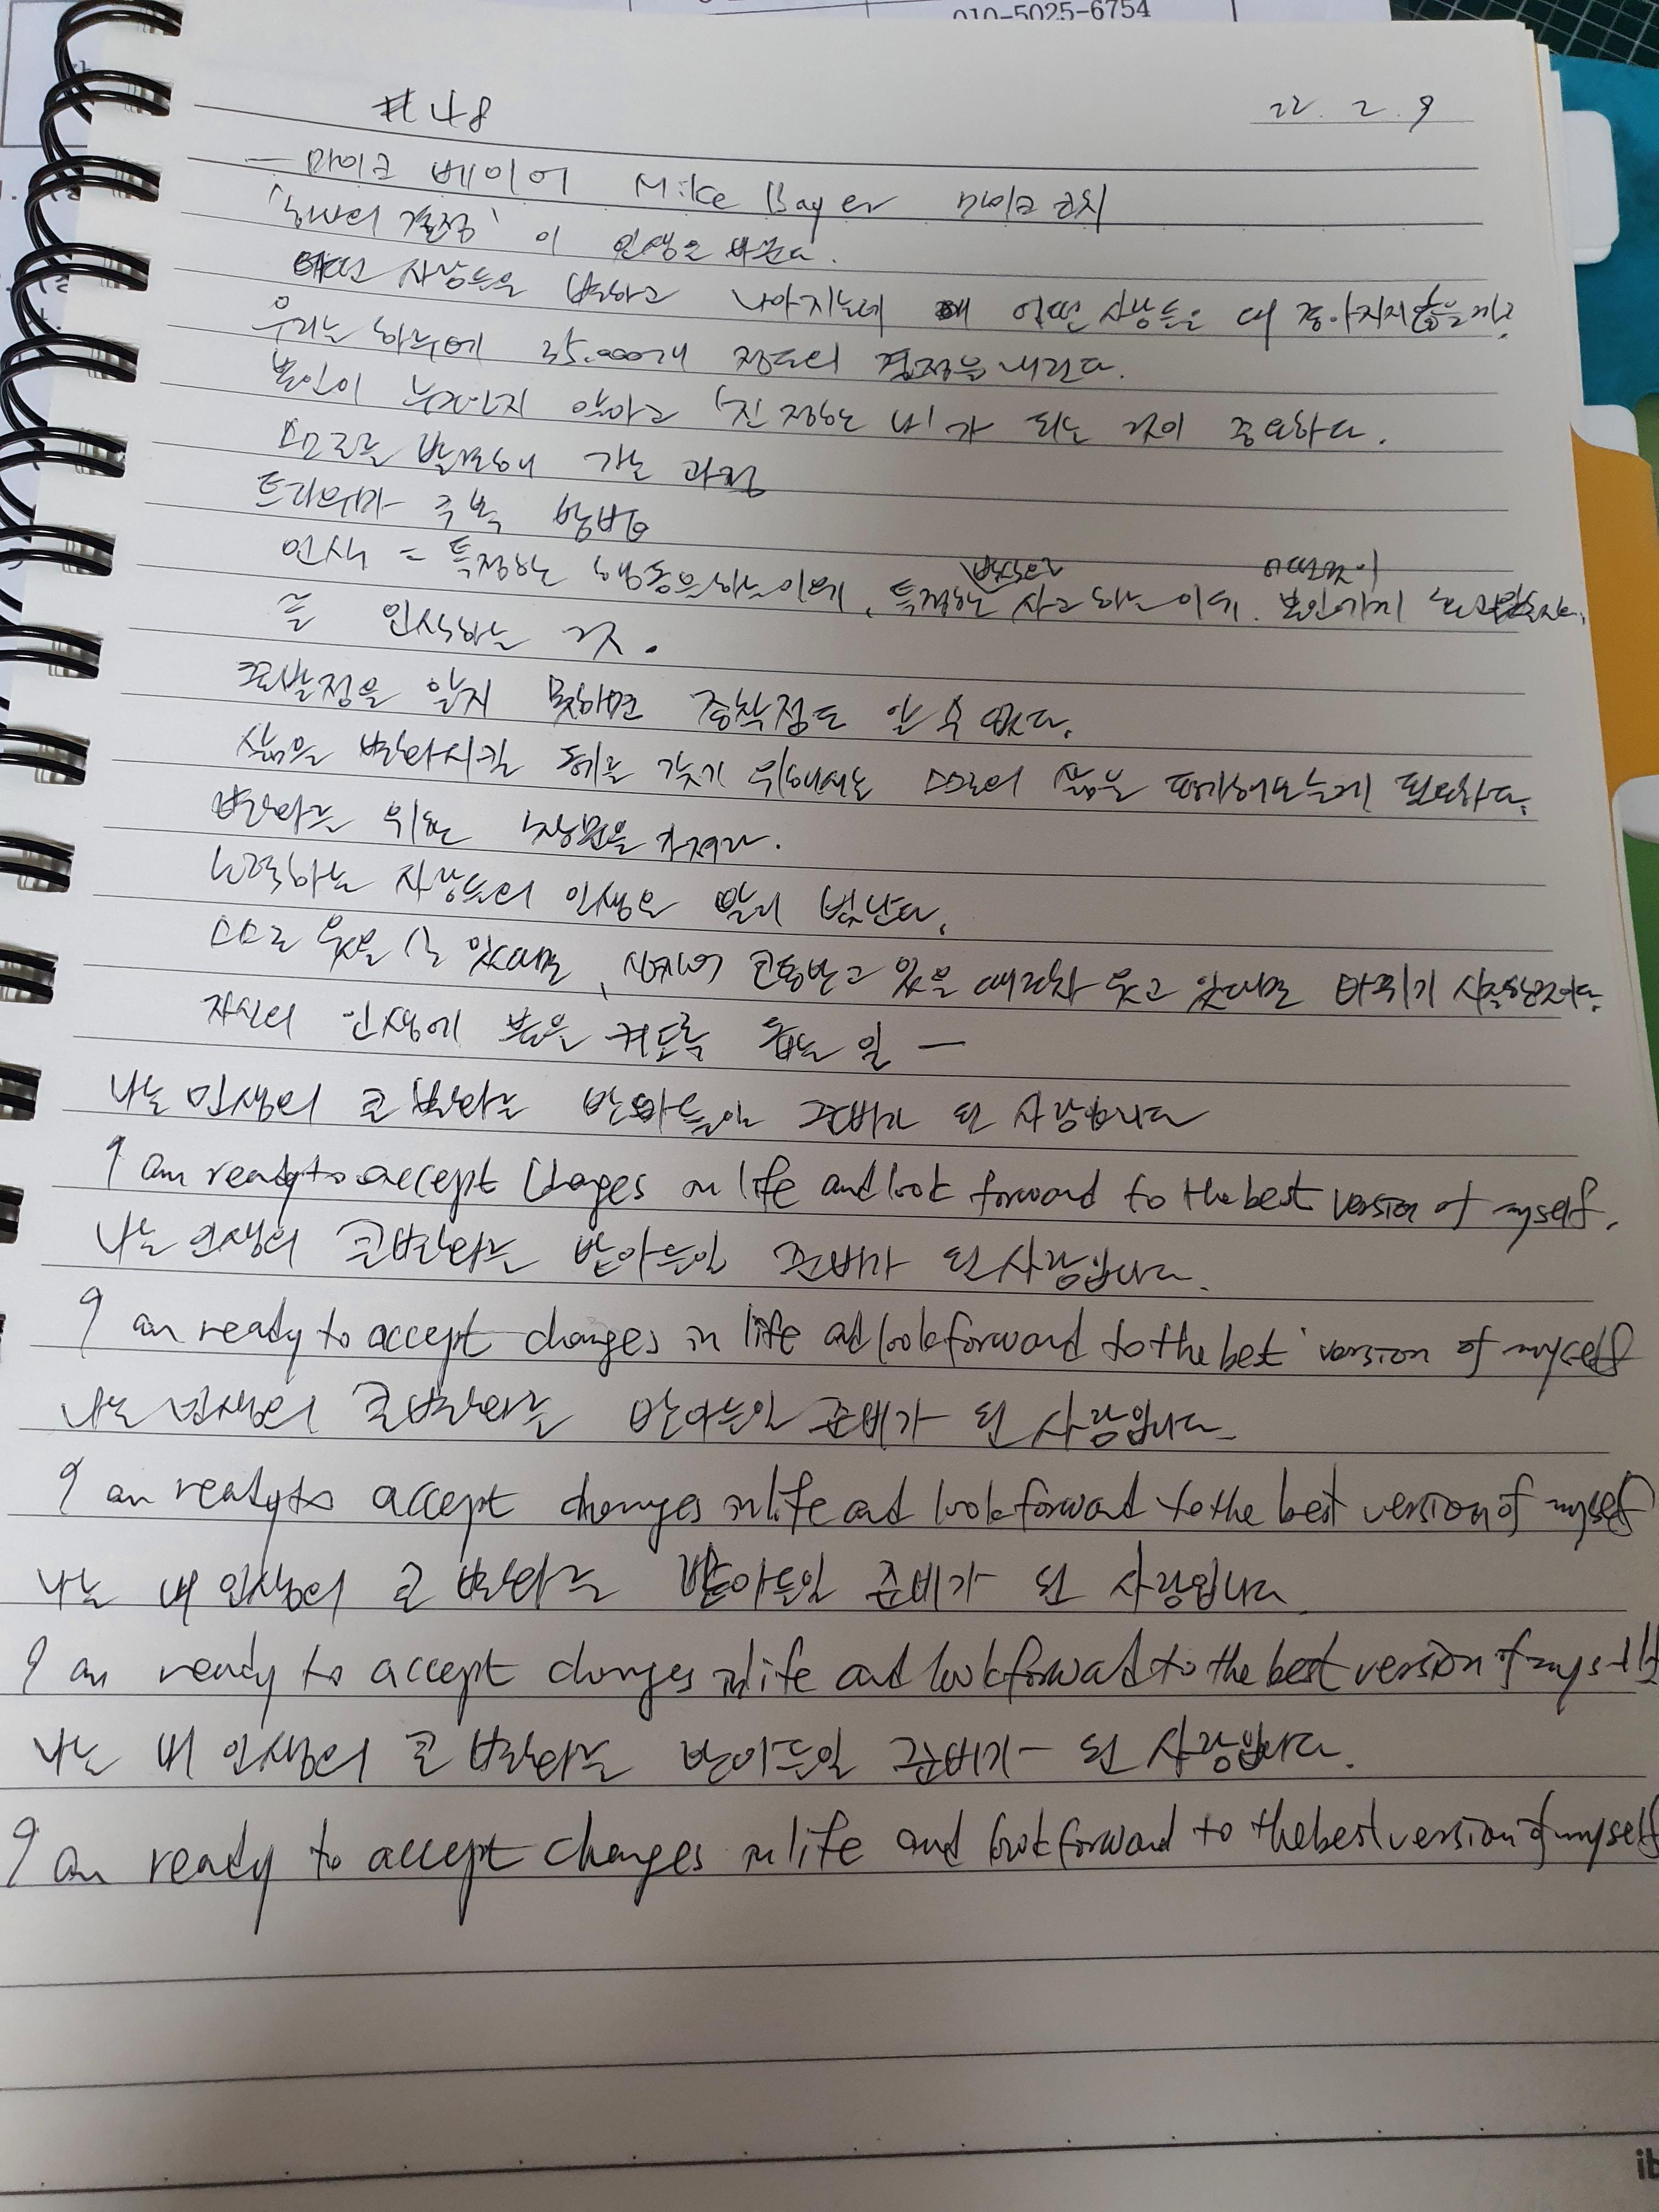 010-5025-6754
#48
22. 2. 9
- 마이크 베이어 Mike Bayer 마이크 코치
'하나의 결정' 이 인생을 바꾼다.
어떤 사람들은 변하고 나아지는데 왜 어떤 사람들은 더 좋아지지 않을까?
우리는 하루에 35.000개 정도의 결정을 내린다.
본인이 누구인지 알아고 '진정한 나'가 되는 것이 중요하다.
스스로를 발견해 가는 과정
트라우마 극복 방법
인식 = 특정한 행동을 하는 이유, 특정한 방식으로 사고하는 이유. 본인에게 어떤 것이
를 인식하는 것.
출발점을 알지 못하면 종착점도 알 수 없다.
삶을 변화시킬 통제를 갖기 위해서는 스스로의 삶을 평가해보는게 필요하다.
변화를 위한 낙장면을 가져라.
노력하는 사람들의 인생은 말이 빛난다.
스스로 웃을 수 있다면, 심지어 고통받고 있을 때조차 웃고 있다면 바뀌기 시작한거다.
자신의 인생에 불을 켜도록 돕는 일 -
나는 인생의 큰 변화를 받아들일 준비가 된 사람입니다
I am ready to accept Chages in life and look forward to the best version of myself.
나는 인생의 큰 변화를 받아들일 준비가 된 사람입니다.
I am ready to accept changes in life and look forward to the best version of myself
나는 인생의 큰 변화를 받아들일 준비가 된 사람입니다.
I am ready to accept changes in life and look forward to the best version of myself
나는 내 인생의 큰 변화를 받아들일 준비가 된 사람입니다.
I am ready to accept changes in life and look forward to the best version of myself
나는 내 인생의 큰 변화를 받아들일 준비가 된 사람입니다.
I am ready to accept changes in life and look forward to the best version of myself